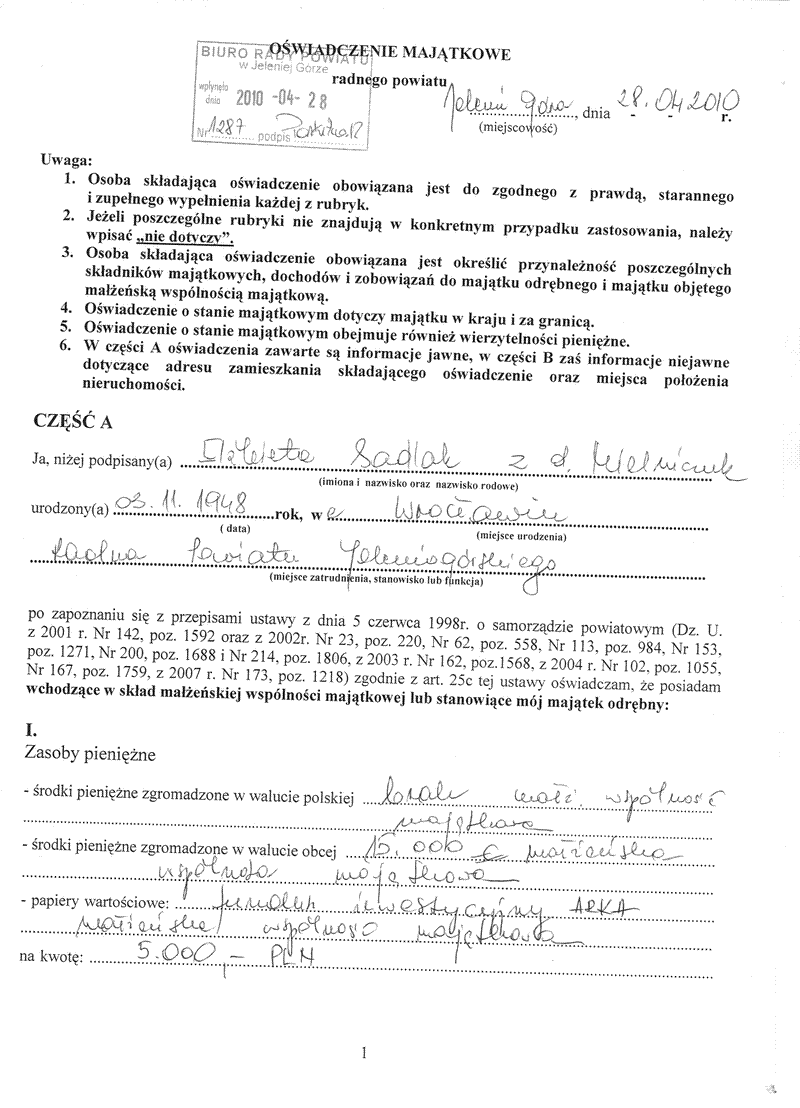 OŚWIADCZENIE MAJĄTKOWE
BIURO RADY POWIATU
w Jeleniej Górze
wpłynęło
dnia 2010 -04- 28
Nr 1287 podpis
radnego powiatu
Jelenia Góra, dnia 28.04.2010 r.
(miejscowość)
Uwaga:
1. Osoba składająca oświadczenie obowiązana jest do zgodnego z prawdą, starannego
i zupełnego wypełnienia każdej z rubryk.
2. Jeżeli poszczególne rubryki nie znajdują w konkretnym przypadku zastosowania, należy
wpisać „nie dotyczy”.
3. Osoba składająca oświadczenie obowiązana jest określić przynależność poszczególnych
składników majątkowych, dochodów i zobowiązań do majątku odrębnego i majątku objętego
małżeńską wspólnością majątkową.
4. Oświadczenie o stanie majątkowym dotyczy majątku w kraju i za granicą.
5. Oświadczenie o stanie majątkowym obejmuje również wierzytelności pieniężne.
6. W części A oświadczenia zawarte są informacje jawne, w części B zaś informacje niejawne
dotyczące adresu zamieszkania składającego oświadczenie oraz miejsca położenia
nieruchomości.
CZĘŚĆ A
Ja, niżej podpisany(a) Elżbieta Sadlak z d. Mielniczuk
(imiona i nazwisko oraz nazwisko rodowe)
urodzony(a) 03.11.1948 rok, w e Wrocławiu
( data) (miejsce urodzenia)
Radna Powiatu Jeleniogórskiego
(miejsce zatrudnienia, stanowisko lub funkcja)
po zapoznaniu się z przepisami ustawy z dnia 5 czerwca 1998r. o samorządzie powiatowym (Dz. U.
z 2001 r. Nr 142, poz. 1592 oraz z 2002r. Nr 23, poz. 220, Nr 62, poz. 558, Nr 113, poz. 984, Nr 153,
poz. 1271, Nr 200, poz. 1688 i Nr 214, poz. 1806, z 2003 r. Nr 162, poz.1568, z 2004 r. Nr 102, poz. 1055,
Nr 167, poz. 1759, z 2007 r. Nr 173, poz. 1218) zgodnie z art. 25c tej ustawy oświadczam, że posiadam
wchodzące w skład małżeńskiej wspólności majątkowej lub stanowiące mój majątek odrębny:
I.
Zasoby pieniężne
- środki pieniężne zgromadzone w walucie polskiej brak małż. wspólność
majątkowa
- środki pieniężne zgromadzone w walucie obcej 15.000 € małżeńska
wspólnota majątkowa
- papiery wartościowe: fundusz inwestycyjny ARKA
małżeńska wspólność majątkowa
na kwotę: 5.000,- PLN
1